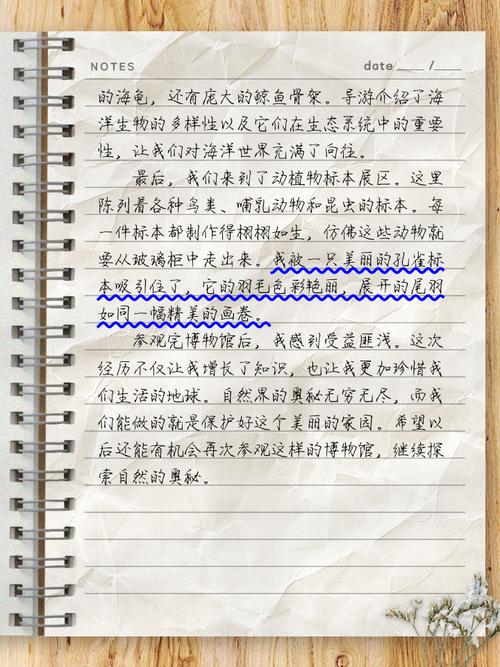 NOTES date ____ /____
的海龟，还有庞大的鲸鱼骨架。导游介绍了海
洋生物的多样性以及它们在生态系统中的重要
性，让我们对海洋世界充满了向往。
最后，我们来到了动植物标本展区。这里
陈列着各种鸟类、哺乳动物和昆虫的标本。每
一件标本都制作得栩栩如生，仿佛这些动物就
要从玻璃柜中走出来。我被一只美丽的孔雀标
本吸引住了，它的羽毛色彩艳丽，展开的尾羽
如同一幅精美的画卷。
参观完博物馆后，我感到受益匪浅。这次
经历不仅让我增长了知识，也让我更加珍惜我
们生活的地球。自然界的奥秘无穷无尽，而我
们能做的就是保护好这个美丽的家园。希望以
后还能有机会再次参观这样的博物馆，继续探
索自然的奥秘。